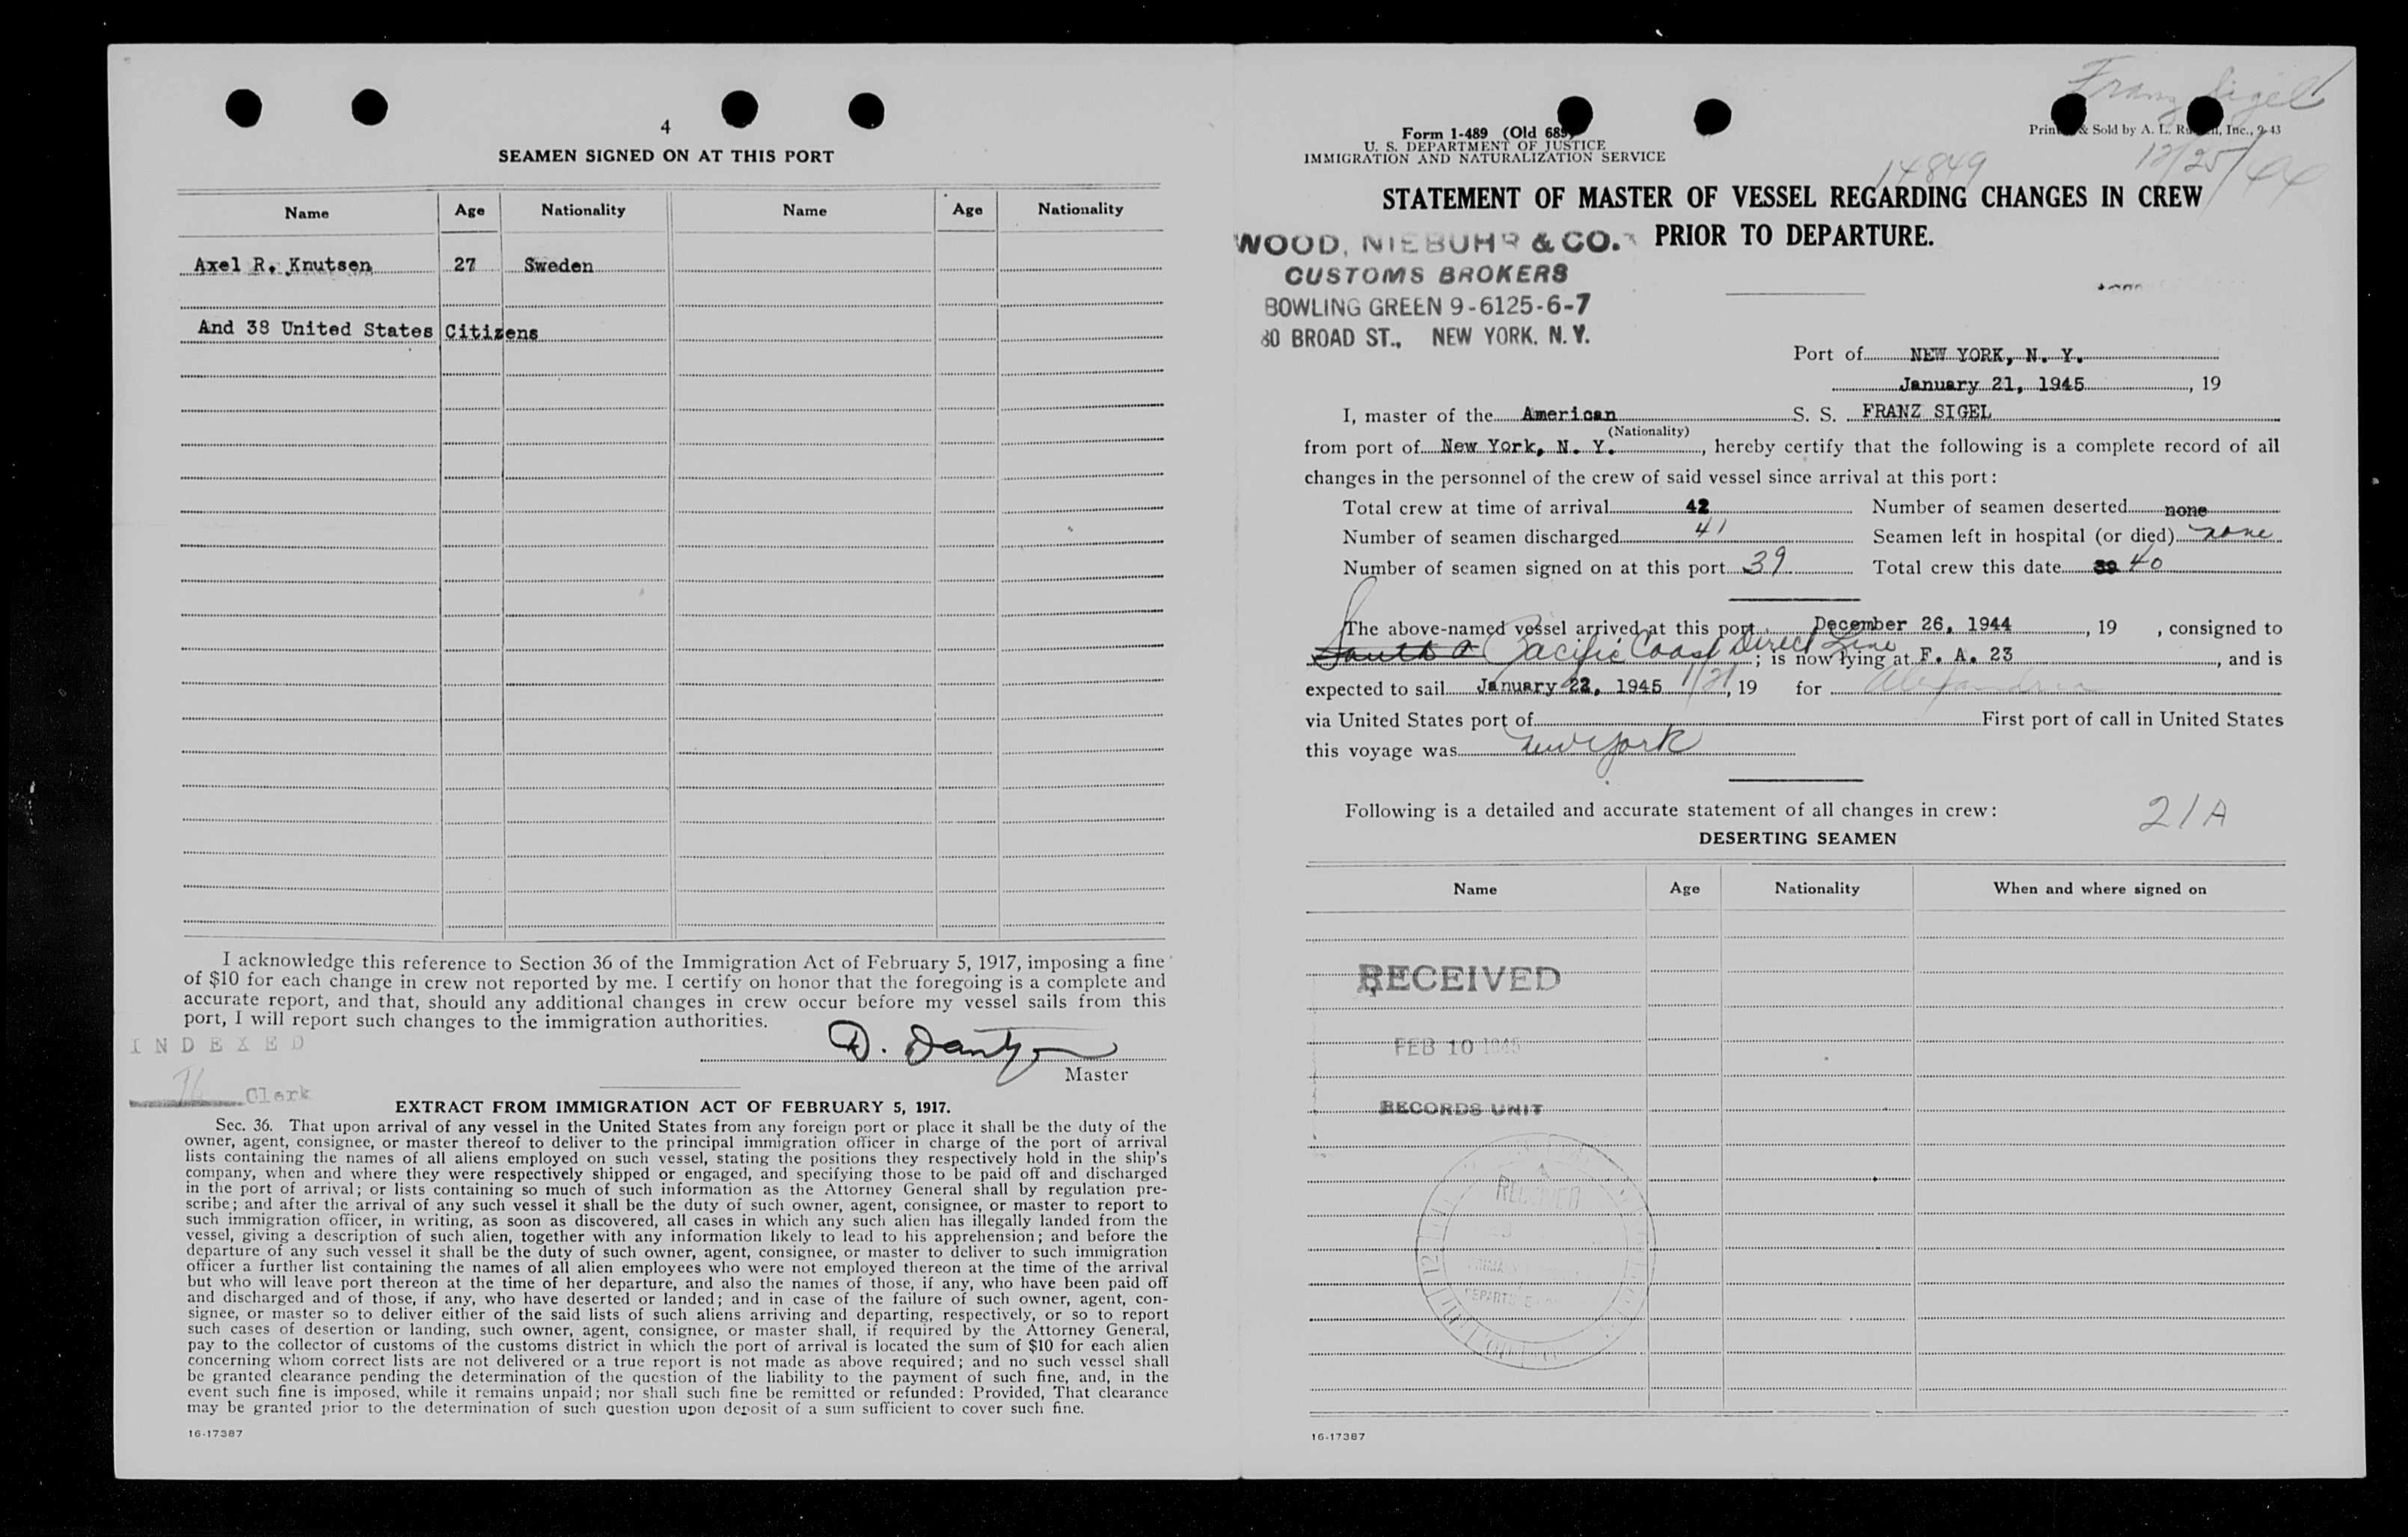 4
SEAMEN SIGNED ON AT THIS PORT
Name Age Nationality Name Age Nationality
Axel R. Knutsen 27 Sweden
And 38 United States Citizens
I acknowledge this reference to Section 36 of the Immigration Act of February 5, 1917, imposing a fine
of $10 for each change in crew not reported by me. I certify on honor that the foregoing is a complete and
accurate report, and that, should any additional changes in crew occur before my vessel sails from this
port, I will report such changes to the immigration authorities.
INDEXED
D.
Master
Clerk
EXTRACT FROM IMMIGRATION ACT OF FEBRUARY 5, 1917.
Sec. 36. That upon arrival of any vessel in the United States from any foreign port or place it shall be the duty of the
owner, agent, consignee, or master thereof to deliver to the principal immigration officer in charge of the port of arrival
lists containing the names of all aliens employed on such vessel, stating the positions they respectively hold in the ship's
company, when and where they were respectively shipped or engaged, and specifying those to be paid off and discharged
in the port of arrival; or lists containing so much of such information as the Attorney General shall by regulation pre-
scribe; and after the arrival of any such vessel it shall be the duty of such owner, agent, consignee, or master to report to
such immigration officer, in writing, as soon as discovered, all cases in which any such alien has illegally landed from the
vessel, giving a description of such alien, together with any information likely to lead to his apprehension; and before the
departure of any such vessel it shall be the duty of such owner, agent, consignee, or master to deliver to such immigration
officer a further list containing the names of all alien employees who were not employed thereon at the time of the arrival
but who will leave port thereon at the time of her departure, and also the names of those, if any, who have been paid off
and discharged and of those, if any, who have deserted or landed; and in case of the failure of such owner, agent, con-
signee, or master so to deliver either of the said lists of such aliens arriving and departing, respectively, or so to report
such cases of desertion or landing, such owner, agent, consignee, or master shall, if required by the Attorney General,
pay to the collector of customs of the customs district in which the port of arrival is located the sum of $10 for each alien
concerning whom correct lists are not delivered or a true report is not made as above required; and no such vessel shall
be granted clearance pending the determination of the question of the liability to the payment of such fine, and, in the
event such fine is imposed, while it remains unpaid; nor shall such fine be remitted or refunded: Provided, That clearance
may be granted prior to the determination of such question upon deposit of a sum sufficient to cover such fine.
16-17387
Franz Sigel
Form I-489 (Old 689)
U. S. DEPARTMENT OF JUSTICE
IMMIGRATION AND NATURALIZATION SERVICE
& Sold by A. L. Inc., 9-43
14849
12/25/44
STATEMENT OF MASTER OF VESSEL REGARDING CHANGES IN CREW
PRIOR TO DEPARTURE.
WOOD, NIEBUHR & CO.
CUSTOMS BROKERS
BOWLING GREEN 9-6125-6-7
80 BROAD ST., NEW YORK, N. Y.
Port of NEW YORK, N. Y.
January 21, 1945, 19
I, master of the American S. S. FRANZ SIGEL
(Nationality)
from port of New York, N. Y., hereby certify that the following is a complete record of all
changes in the personnel of the crew of said vessel since arrival at this port:
Total crew at time of arrival 42 Number of seamen deserted none
Number of seamen discharged 41 Seamen left in hospital (or died) none
Number of seamen signed on at this port 39 Total crew this date 39 40
The above-named vessel arrived at this port December 26, 1944, 19 , consigned to
South A Pacific Coast Direct Line; is now lying at F. A. 23, and is
expected to sail January 22, 1945 1/21, 19 for Alexandria
via United States port of First port of call in United States
this voyage was New York
Following is a detailed and accurate statement of all changes in crew:
21A
DESERTING SEAMEN
Name Age Nationality When and where signed on
RECEIVED
FEB 10 1945
RECORDS UNIT
RECEIVED
16-17387